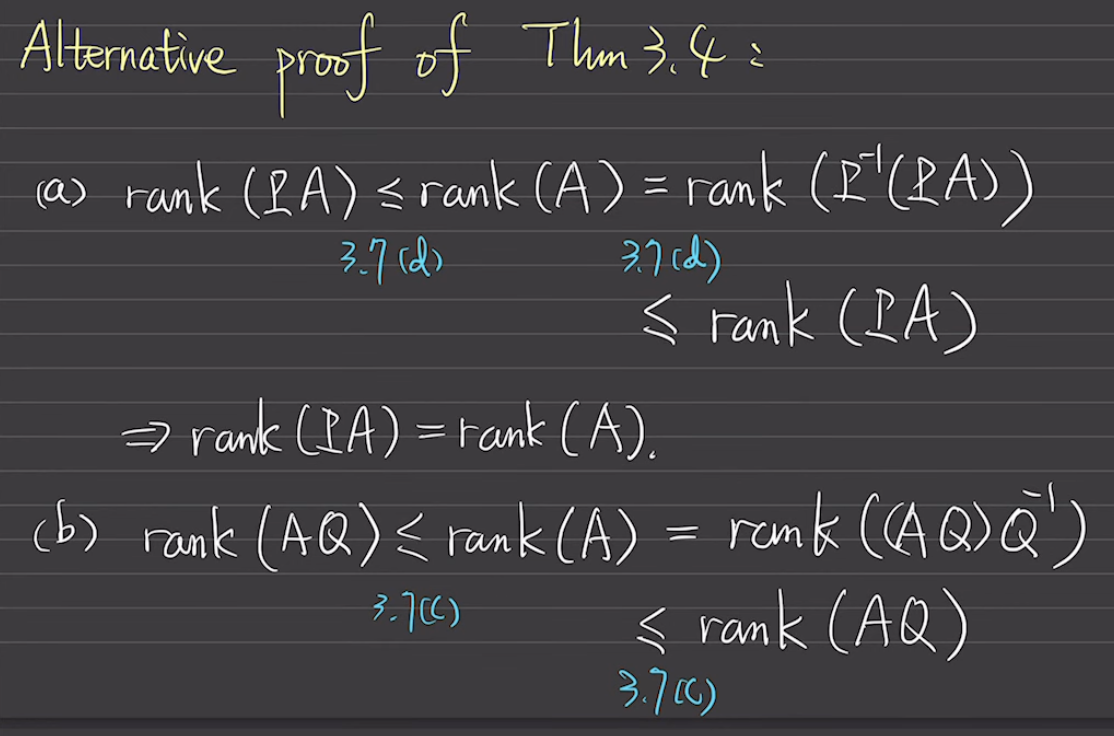 Alternative proof of Thm 3.4 :
(a) rank (PA) ≤ rank (A) = rank (P⁻¹(PA))
3.7(d) 3.7(d)
≤ rank (PA)
⇒ rank (PA) = rank (A).
(b) rank (AQ) ≤ rank (A) = rank ((AQ)Q⁻¹)
3.7(c) ≤ rank (AQ)
3.7(c)